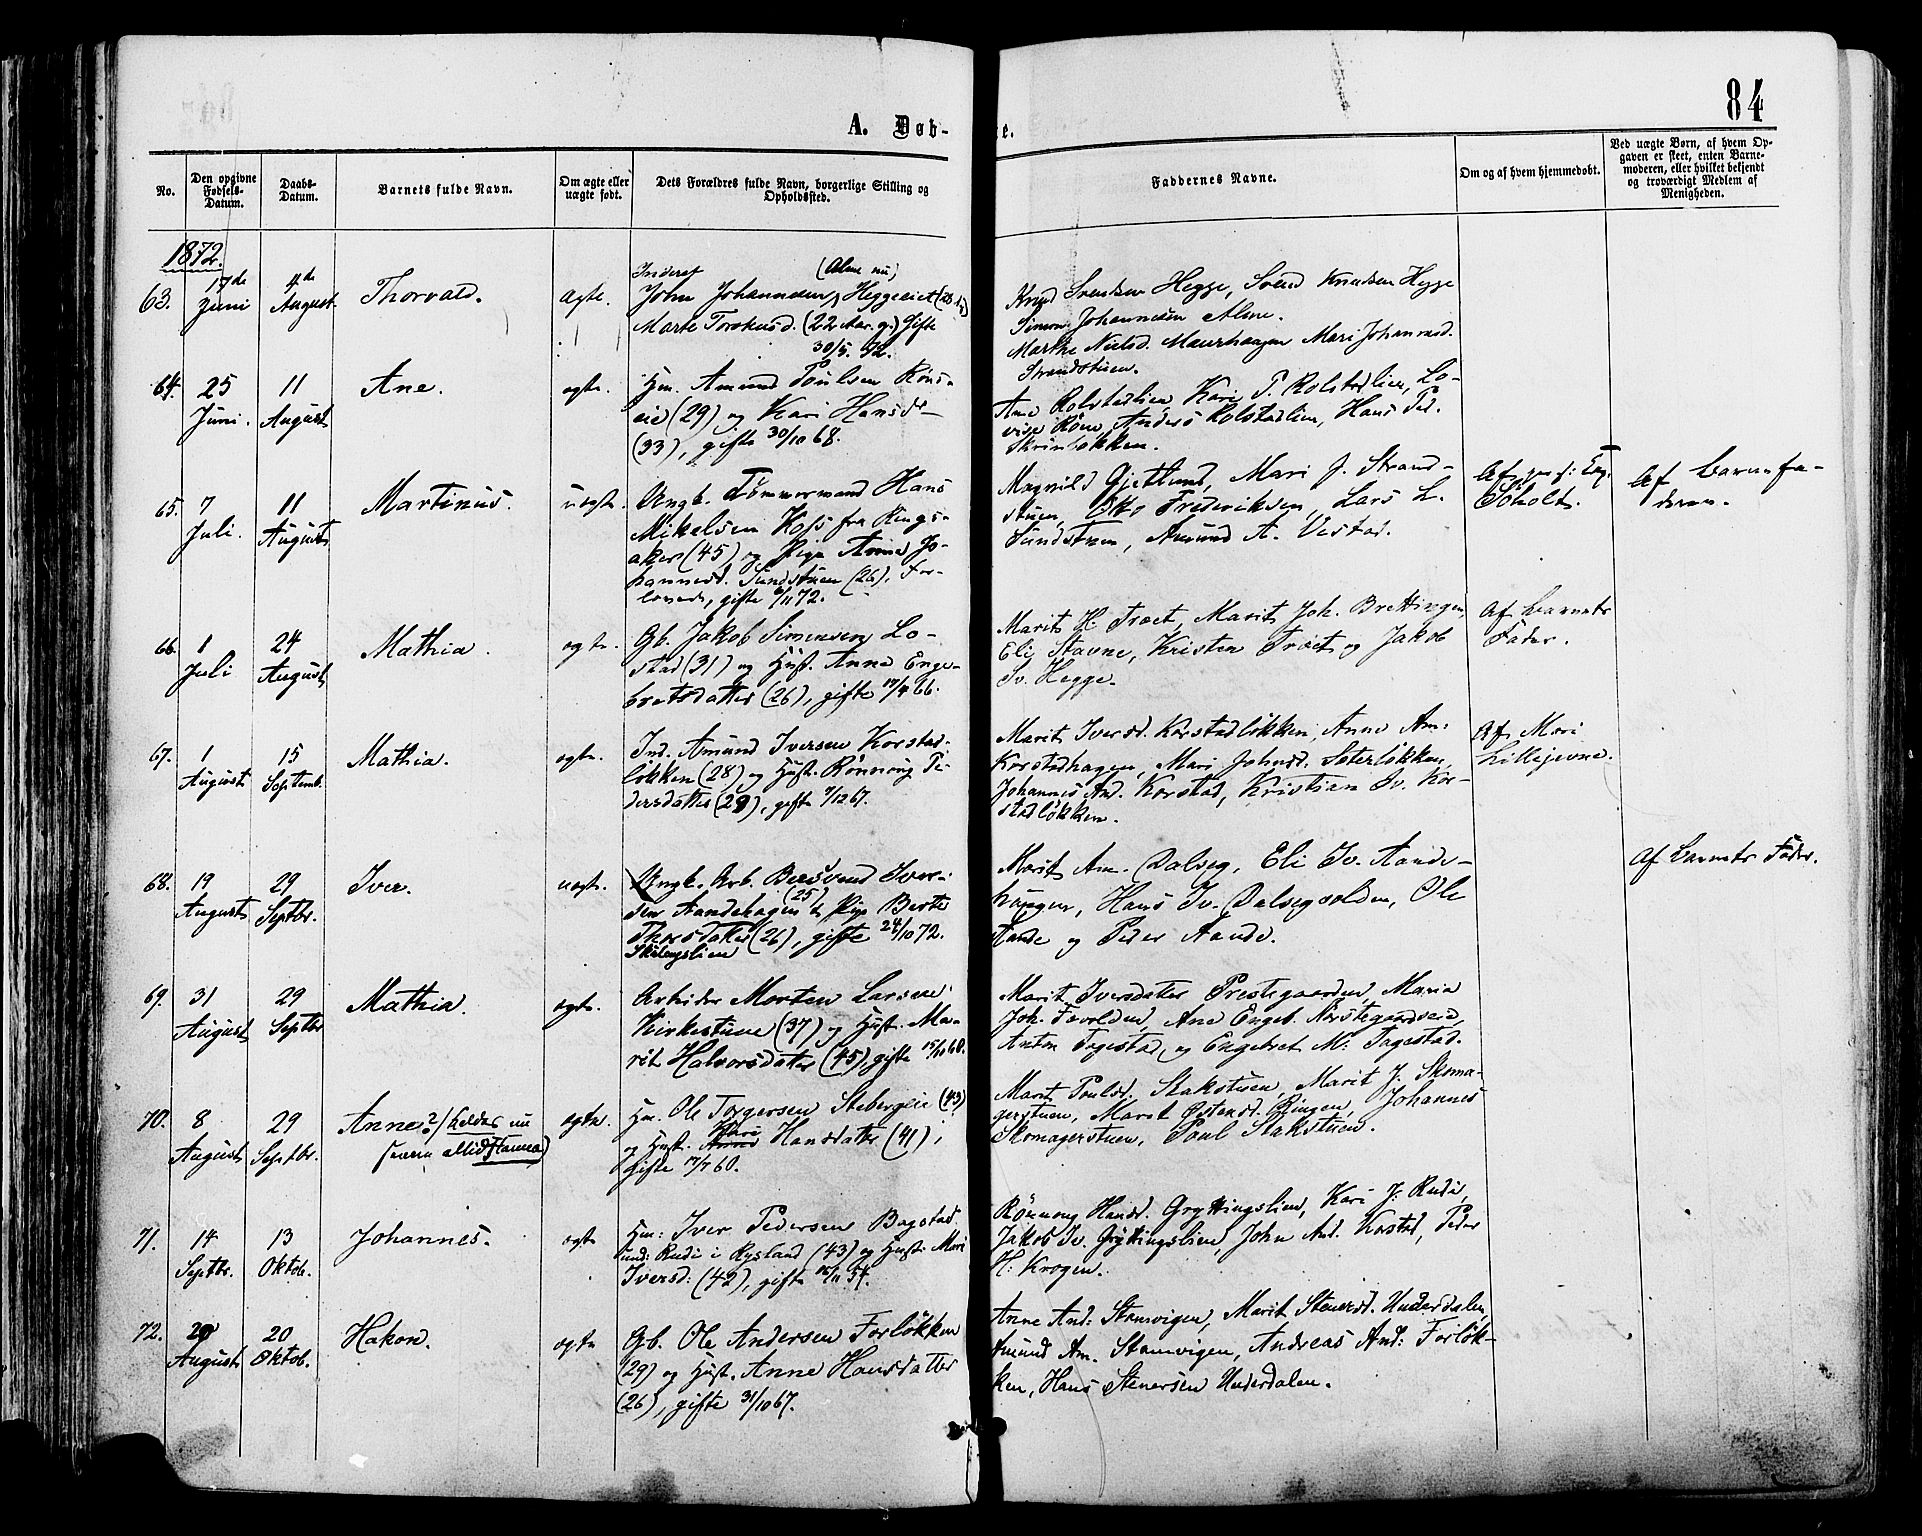 84
A. Døb-
te.
No.
Den opgivne Fødsels-Datum.
Daabs-Datum.
Barnets fulde Navn.
Om ægte eller uægte født.
Dets Forældres fulde Navn, borgerlige Stilling og Opholdssted.
Faddernes Navne.
Om og af hvem hjemmedøbt.
Ved uægte Børn, af hvem Op-
gaven er skeet, enten Barne-
moderen, eller hvilket bekjendt
og troværdigt Medlem af
Menigheden.
1872.
63. 17de Juni 4de August. Thorvald. ægte.
Inderst (Alme nu)
John Johannesen Heggeeiet
Marte Torstensd. (22 Aar g.) Gifte
30/5. 72.
Knud Svendsen Hegge, Svend Knudsen Hegge
Simen Johannesen Alme.
Marthe Nielsd. Maurhaugen Mari Johannesd.
Strandstuen.
64. 25 Juni. 11 August Ane. ægte.
Hm. Amund Poulsen Röns-
eie (29) og Kari Hansdr
(33), gifte 30/10 68.
Ane Rolstadlien, Kari P. Rolstadlien, Lo-
vise Röne, Anders Rolstadlien, Hans Ped.
Skrinløkken.
65. 7 Juli. 11 August Martinus. uægte.
Ungk. Tømmermand Hans
Mikelsen Hoff fra Rings-
aker (45) og Pige Anne Jo-
hannesd. Sundstuen (26), For-
lovede, gifte 6/11 72.
Magnild Gjetlund, Mari J. Strand-
stuen, Otto Frederiksen, Lars L.
Sundstuen, Amund A. Vestad.
Af
Soholt.
Af Barnefa-
deren.
66. 1 Juli 24 August Mathia. ægte.
Gb. Jakob Simensen Lo-
stad (31) og Hust. Anne Enge-
bretsdatter (26), gifte 17/4 66.
Marit H. Troet, Marit Joh. Brettingen,
Eli Stavne, Kristen Troet og Jakob
Sv. Hegge.
Af Barnets
Fader.
67. 1 August 15 Septemb. Mathia. ægte.
Ind. Amund Iversen Korstad-
løkken (28) og Hust. Rönnoug Pe-
dersdatter (29), gifte 7/12 67.
Marit Iversd. Korstadløkken, Anne Am:
Korstadhagen, Mari Johnsd. Seterløkken,
Johannes And. Korstad, Kristian Iv. Kor-
stadløkken.
Af Mari
Lillejevne.
68. 19 August 29 Septbr. Iver. uægte.
Ungk. Arb. Bersvend Iver-
sen Aandehagen (25) & Pige Berte
Thorsdatter (26), gifte 24/10 72.
Marit Am. Dalseg, Eli Iv. Aande-
haugen, Hans Iv. Dalsegvolden, Ole
Aande og Peder Aande.
Af Barnets Fader.
69. 31 August 29 Septbr Mathia. ægte.
Arbeider Morten Larsen
Kirkestuen (37) og Hust. Ma-
rit Halvorsdatter (45), gifte 15/10 60.
Marit Iversdatter Prestegaarden, Maria
Joh. Fævolden, Ane Engeb. Nørstegaardseie,
Anton Tagestad, og Engebret M: Tagestad.
70. 8 August 29 Septbr. Anne? (kaldes nu
altid Hanna) ægte.
Hm. Ole Torgersen Stebergeie (43)
og Hust. Kari Hansdatter (41),
gifte 17/7 60.
Marit Poulsd. Stakstuen, Marit J. Skoma-
gerstuen, Marit Østensd. Ringen, Johannes
Skomagerstuen, Poul Stakstuen.
71. 14 Septbr. 13 Oktob. Johannes. ægte
Hm: Iver Pedersen Bagstad
und: Rudi i Rysland (43) og Hust. Mari
Iversd: (42), gifte 16/11 54.
Rönnoug Hansd. Gryttingslien, Kari J: Rudi,
Jakob Iv. Gryttingslien, John And. Korstad, Peder
H: Krogen.
72. 20 August 20 Oktob. Hakon. ægte
Gb. Ole Andersen Forløkken
(29) og Hust. Anne Hansdatter
(26), gifte 31/10 67.
Anne And: Stamvigen, Marit Stenersd. Underdalen,
Amund Am. Stamvigen, Andreas And: Forløk-
ken, Hans Stenersen Underdalen.